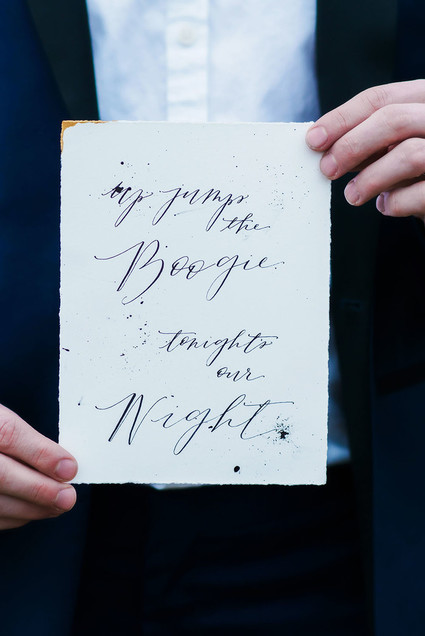 up jump
the
Boogie
tonights
our
Night